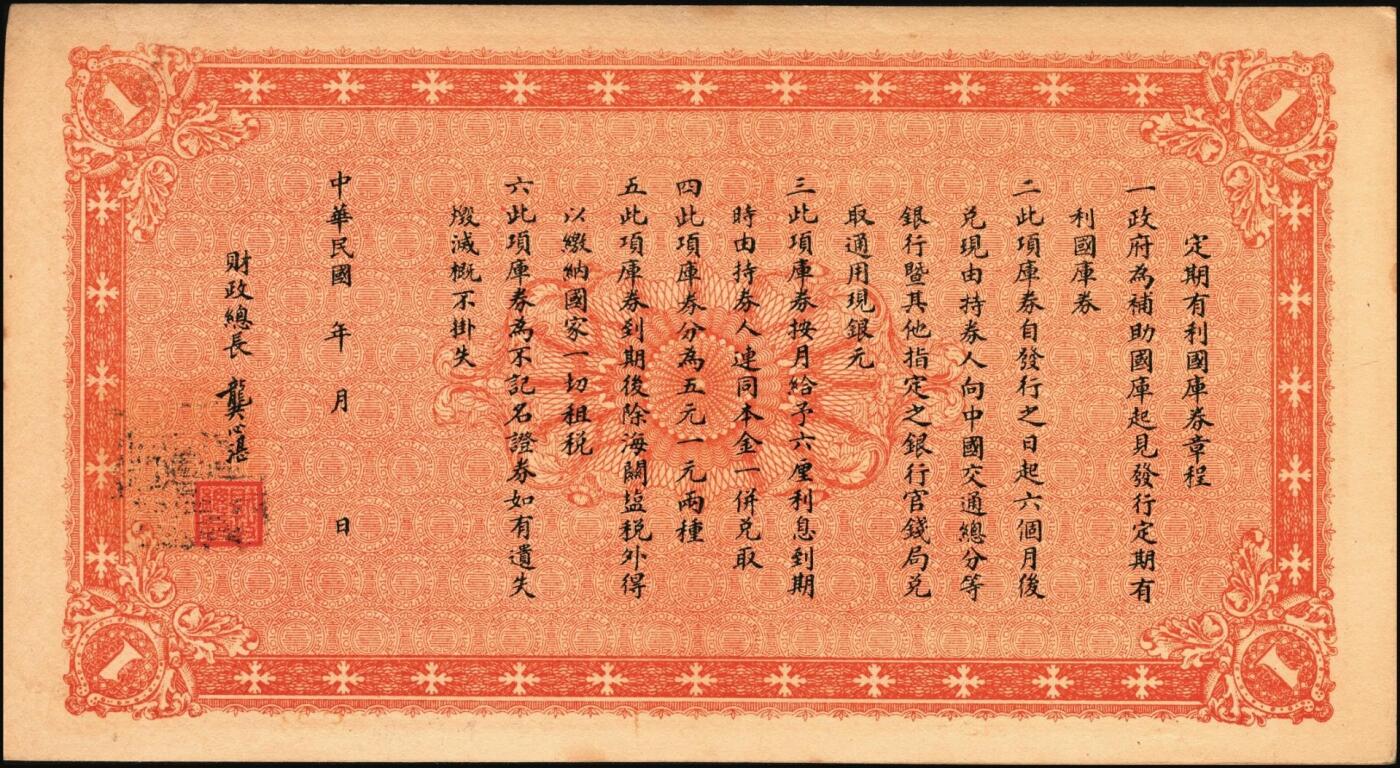 定期有利國庫券章程
一政府為補助國庫起見發行定期有
利國庫券
二此項庫券自發行之日起六個月後
兑現由持券人向中國交通總分等
銀行暨其他指定之銀行官錢局兑
取通用現銀元
三此項庫券按月給予六厘利息到期
時由持券人連同本金一併兑取
四此項庫券分為五元一元兩種
五此項庫券到期後除海關塩税外得
以繳納國家一切租税
六此項庫券為不記名證券如有遺失
燬滅概不掛失
中華民國 年 月 日
財政總長 龔心湛
1
1
1
1